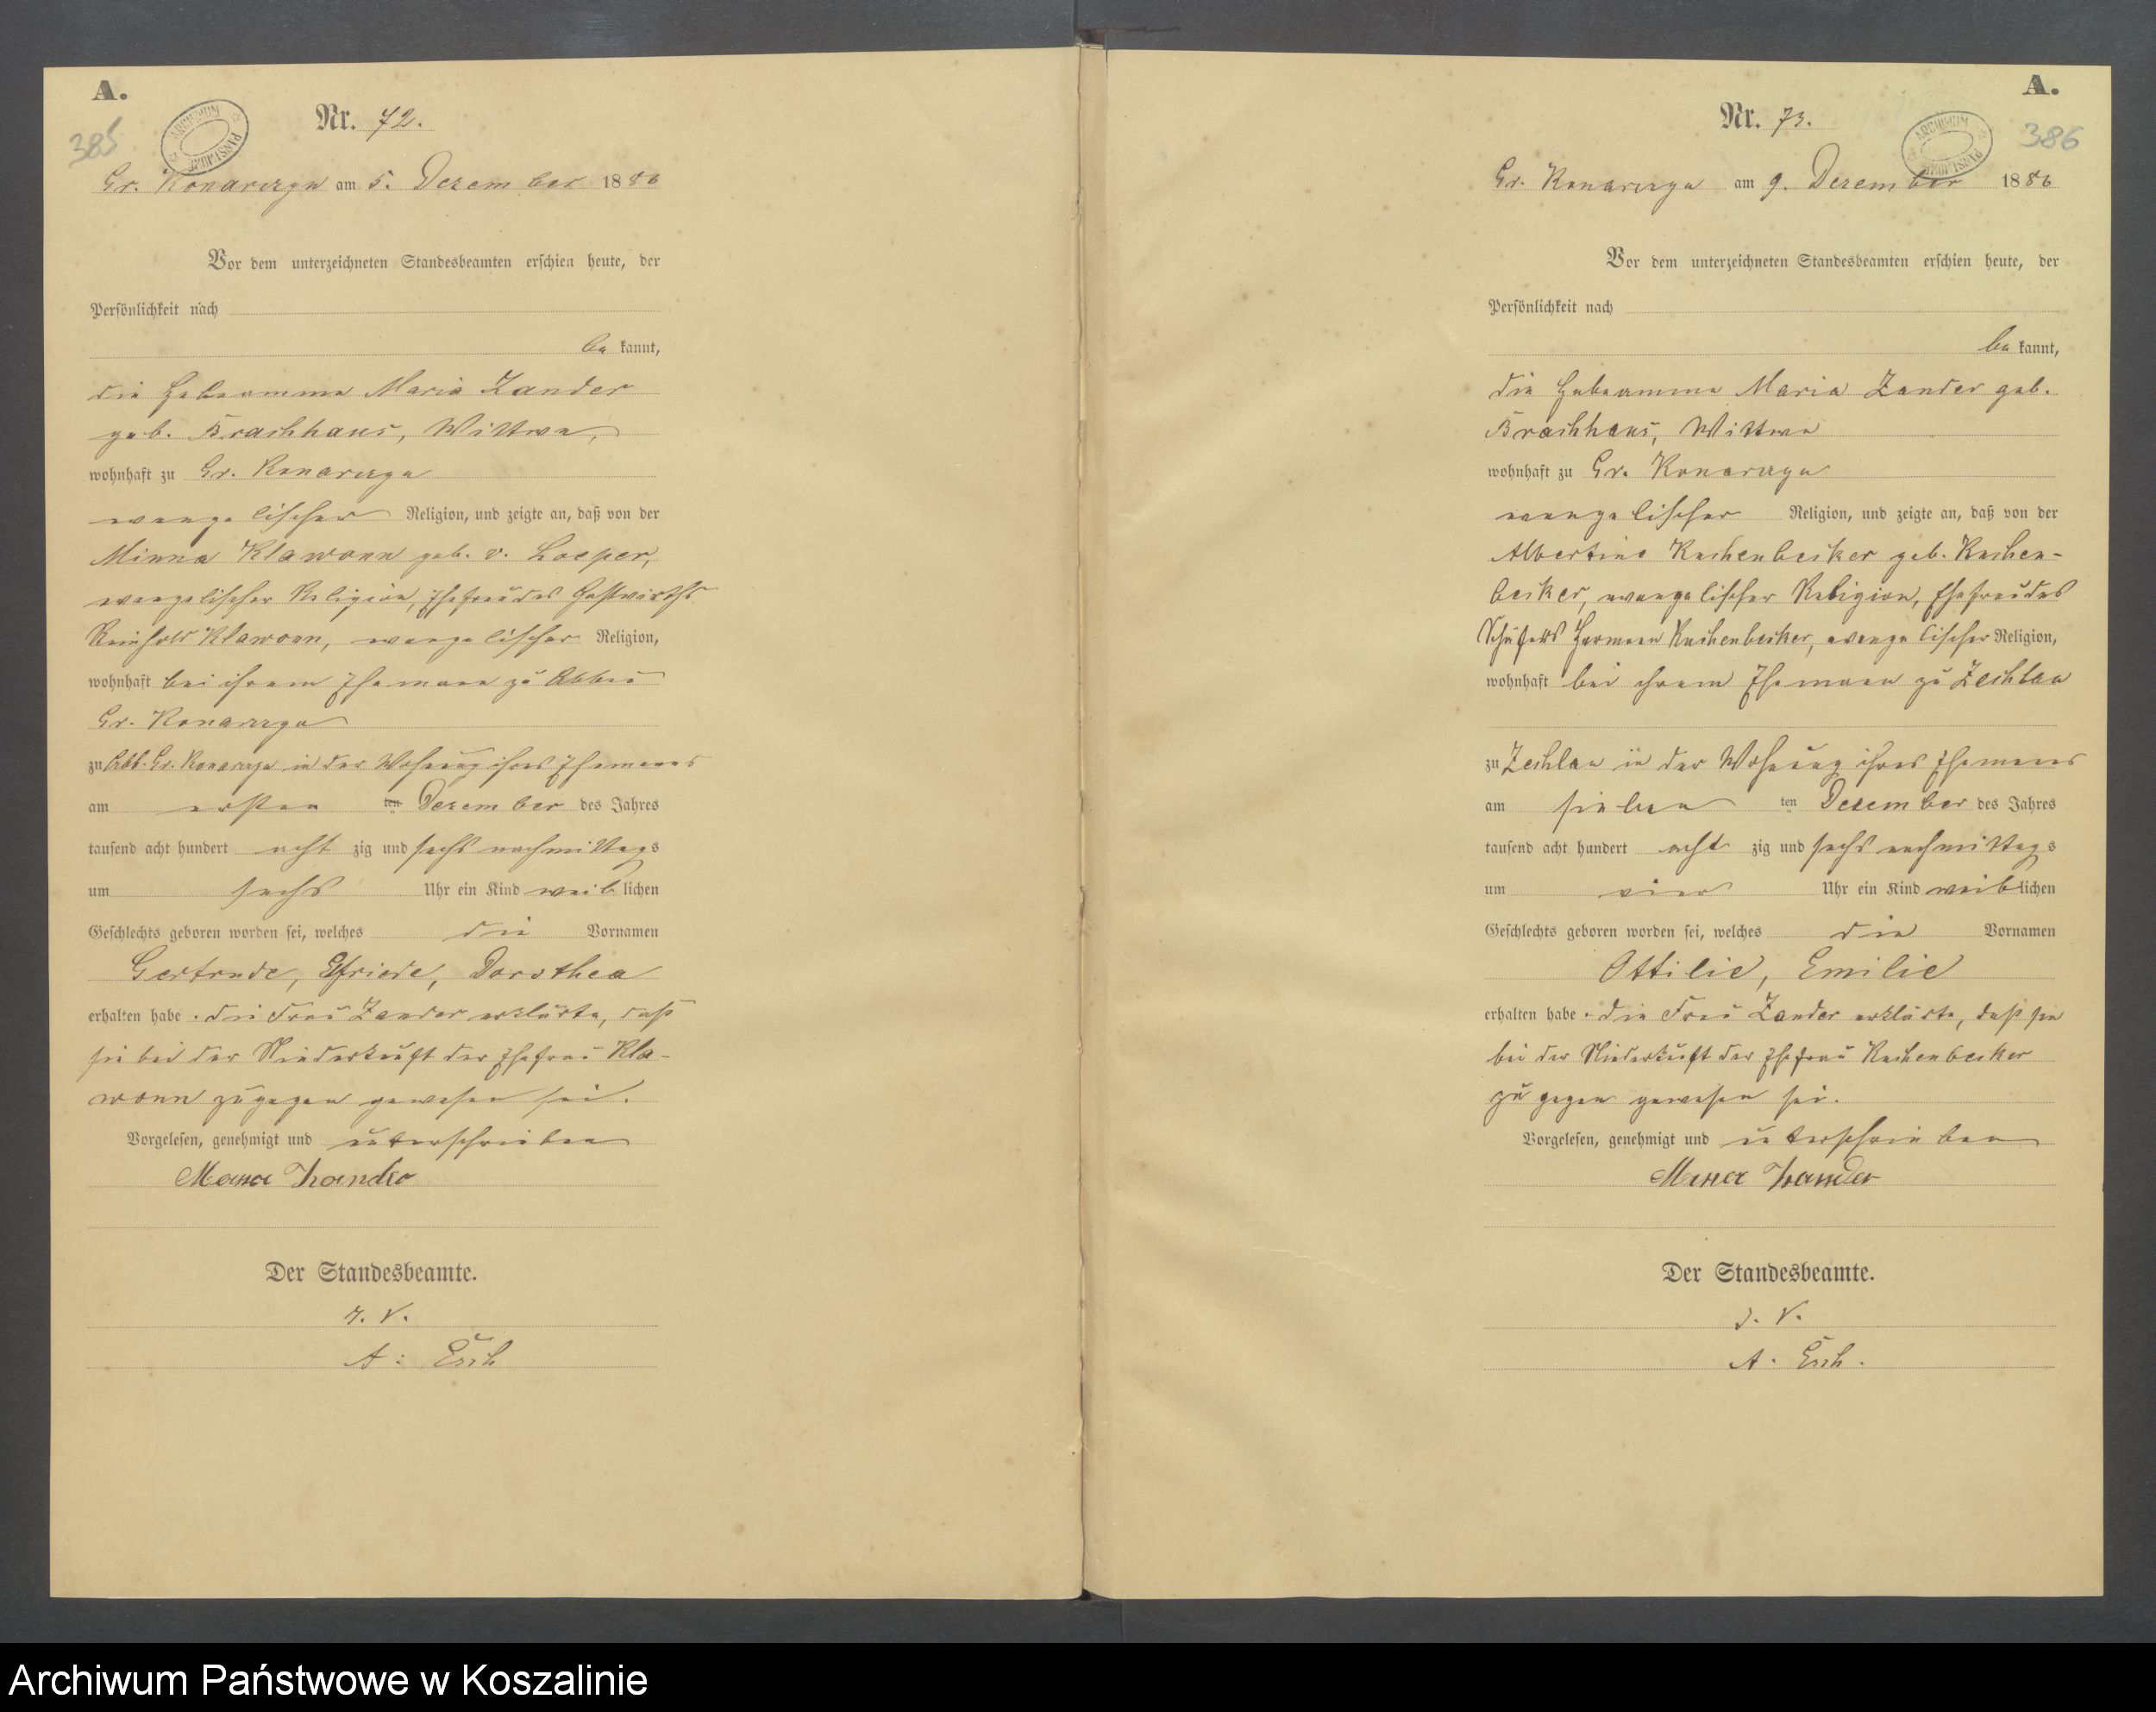 A.
385
ARCHIWUM PAŃSTWOWE
Nr. 72.
Gr. Konarczyn am 5. Dezember 1886
Vor dem unterzeichneten Standesbeamten erschien heute, der
Persönlichkeit nach
be kannt,
die Hebeamme Maria Zander
geb. Brachhaus, Wittwe,
wohnhaft zu Gr. Konarczyn
evangelischer Religion, und zeigte an, daß von der
Minna Klawonn geb. v. Loeper,
evangelischer Religion, Ehefrau des Gastwirths
Reinhold Klawonn, evangelischer Religion,
wohnhaft bei ihrem Ehemann zu Abbau
Gr. Konarczyn
zu Abb. Gr. Konarczyn in der Wohnung ihres Ehemannes
am ersten ten Dezember des Jahres
tausend acht hundert acht zig und sechs nachmittags
um sechs Uhr ein Kind weib lichen
Geschlechts geboren worden sei, welches die Vornamen
Gertrude, Elfriede, Dorothea
erhalten habe. die Frau Zander erklärte, daß
sie bei der Niederkunft der Ehefrau Kla-
wonn zugegen gewesen sei.
Vorgelesen, genehmigt und unterschrieben
Maria Zander
Der Standesbeamte.
I. V.
A. Esch
A.
386
ARCHIWUM PAŃSTWOWE
Nr. 73.
Gr. Konarczyn am 9. Dezember 1886
Vor dem unterzeichneten Standesbeamten erschien heute, der
Persönlichkeit nach
be kannt,
die Hebeamme Maria Zander geb.
Brachhaus, Wittwe
wohnhaft zu Gr. Konarczyn
evangelischer Religion, und zeigte an, daß von der
Albertine Kuchenbecker geb. Kuchen-
becker, evangelischer Religion, Ehefrau des
Schäfers Hermann Kuchenbecker, evangelischer Religion,
wohnhaft bei ihrem Ehemann zu Zechlau
zu Zechlau in der Wohnung ihres Ehemannes
am sieben ten Dezember des Jahres
tausend acht hundert acht zig und sechs nachmittags
um vier Uhr ein Kind weib lichen
Geschlechts geboren worden sei, welches die Vornamen
Ottilie, Emilie
erhalten habe. die Frau Zander erklärte, daß sie
bei der Niederkunft der Ehefrau Kuchenbecker
zugegen gewesen sei.
Vorgelesen, genehmigt und unterschrieben
Maria Zander
Der Standesbeamte.
I. V.
A. Esch.
Archiwum Państwowe w Koszalinie